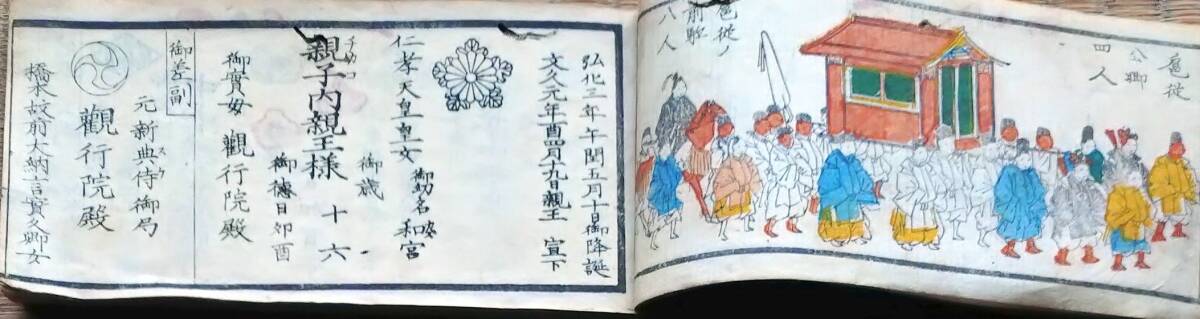 扈従
公卿
四人
扈従ノ
前駈
八人
弘化三年午閏五月十日御降誕
文久元年酉四月九日親王 宣下
仁孝天皇皇女 御幼名 和宮
親子内親王様 御歳 十六
チカコ
御徳日卯酉
御實母 觀行院殿
御差副
元新典侍御局
觀行院殿
橋本故前大納言實久卿女